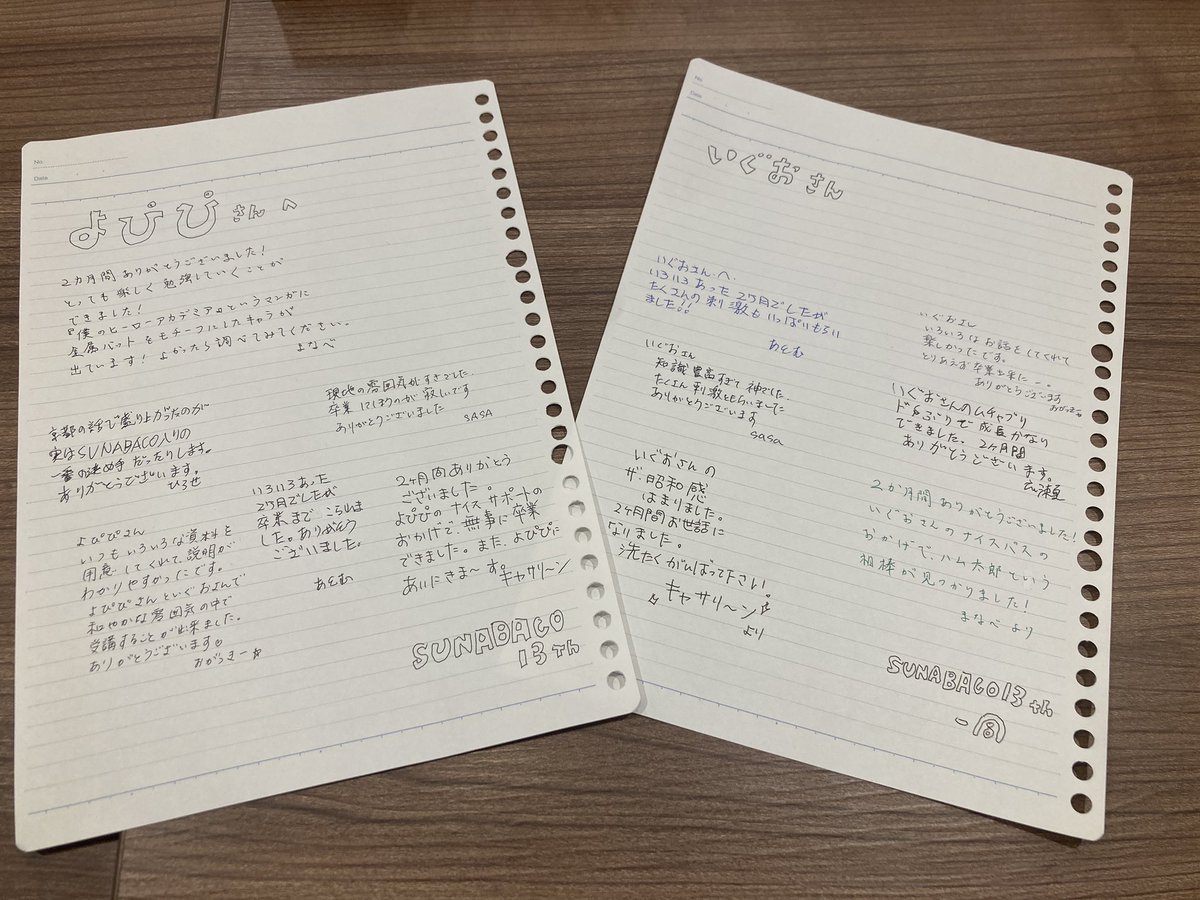 No.
Date
よぴぴさんへ
2カ月間ありがとうございました!
とっても楽しく勉強していくことが
できました!
『僕のヒーローアカデミア』というマンガに
金属バットをモチーフにしたキャラが
出ています!よかったら調べてみてください。
まなべ
現地の雰囲気がすきでした。
卒業にしほうのが寂しいです
ありがとうございました
sasa
京都の話で盛り上がったのが
実はSUNABACO入りの
一番の決め手だったりします。
ありがとうございます。
ひろせ
いろいろあった
2カ月でしたが
卒業までこられま
した。ありがとう
ございました。
あとむ
2ヶ月間ありがとう
ございました。
よぴぴのナイスサポートの
おかげで、無事に卒業
できました。また、よぴぴに
あいにきま〜す。
キャサリ〜ン
よぴぴさん
いつもいろいろな資料を
用意してくれて、説明が
わかりやすかったです。
よぴぴさんといぐおさんで
和やかな雰囲気の中で
受講することが出来ました。
ありがとうございます
おがっきー☆
SUNABACO
13Th
No.
Date
いぐおさん
いぐおさんへ
いろいろあった2カ月でしたが
たくさんの刺激もいっぱいもらい
ました!!
あとむ
いぐおさん
知識豊富すぎて神でした。
たくさん刺激をもらいました
ありがとうございます
sasa
いぐおさんの
ザ・昭和感
はまりました。
2ヶ月間お世話に
なりました。
洗たくがんばって下さい!
キャサリ〜ン
より
いぐおさん
いろいろなお話をしてくれて
楽しかったです。
とりあえず卒業出来た
ありがとうございます
おがっきー
いぐおさんのムチャブリ
ド〜ぶりで成長かなり
できました。2ヶ月間
ありがとうございます。
広瀬
2か月間ありがとうございました!
いぐおさんのナイスパスの
おかげで、ハム太郎という
相棒が見つかりました!
まなべより
SUNABACO13th
一同